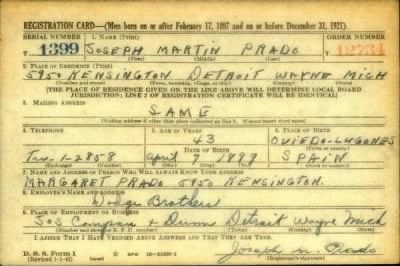 REGISTRATION CARD—(Men born on or after February 17, 1897 and on or before December 31, 1921)
SERIAL NUMBER 1. NAME (Print) ORDER NUMBER
T 1399 JOSEPH MARTIN PRADO 12734
(First) (Middle) (Last)
2. PLACE OF RESIDENCE (Print)
5950 KENSINGTON DETROIT WAYNE MICH
(Number and street) (Town, township, village, or city) (County) (State)
[THE PLACE OF RESIDENCE GIVEN ON THE LINE ABOVE WILL DETERMINE LOCAL BOARD
JURISDICTION; LINE 2 OF REGISTRATION CERTIFICATE WILL BE IDENTICAL]
3. MAILING ADDRESS
SAME
(Mailing address if other than place indicated on line 2. If same insert word same)
4. TELEPHONE 5. AGE IN YEARS 6. PLACE OF BIRTH
43 OVIEDO-LUGONES
DATE OF BIRTH
1-2858 April 7 1898 SPAIN
7. NAME AND ADDRESS OF PERSON WHO WILL ALWAYS KNOW YOUR ADDRESS
MARGARET PRADO 5950 KENSINGTON
8. EMPLOYER'S NAME AND ADDRESS
Dodge Brothers
9. PLACE OF EMPLOYMENT OR BUSINESS
Jos Campau + Dunn Detroit Wayne Mich
I AFFIRM THAT I HAVE VERIFIED ABOVE ANSWERS AND THAT THEY ARE TRUE.
D. S. S. Form 1
(Revised 1-1-42) (over) Joseph M. Prado